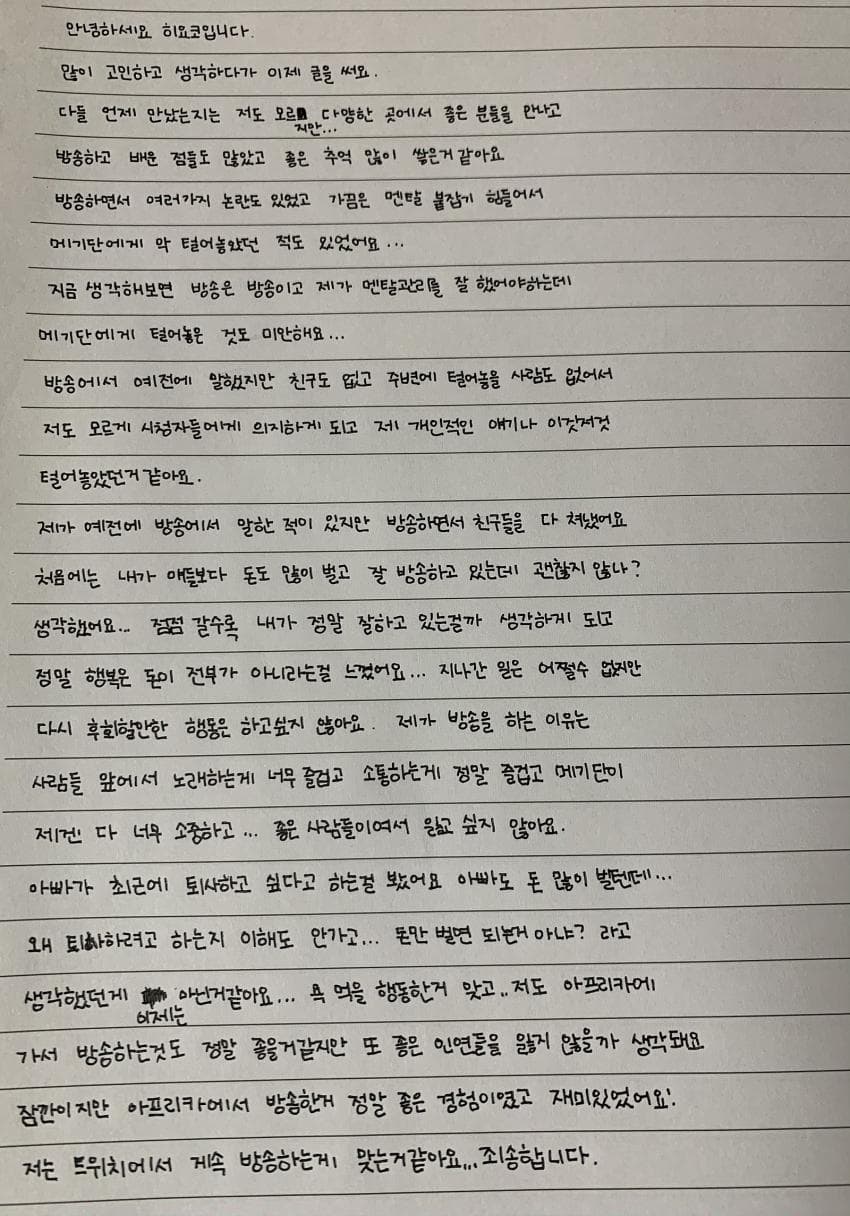 안녕하세요 히요코입니다.
많이 고민하고 생각하다가 이제 글을 써요.
다들 언제 만났는지는 저도 모르지만... 다양한 곳에서 좋은 분들을 만나고
방송하고 배운 점들도 많았고 좋은 추억 많이 쌓은거 같아요
방송하면서 여러가지 논란도 있었고 가끔은 멘탈 붙잡기 힘들어서
메기단에게 막 털어놓았던 적도 있었어요...
지금 생각해보면 방송은 방송이고 제가 멘탈관리를 잘 했어야하는데
메기단에게 털어놓은 것도 미안해요...
방송에서 예전에 말했지만 친구도 없고 주변에 털어놓을 사람도 없어서
저도 모르게 시청자들에게 의지하게 되고 제 개인적인 얘기나 이것저것
털어놓았던거 같아요.
제가 예전에 방송에서 말한 적이 있지만 방송하면서 친구들을 다 쳐냈어요
처음에는 내가 얘들보다 돈도 많이 벌고 잘 방송하고 있는데 괜찮지 않나?
생각했어요... 점점 갈수록 내가 정말 잘하고 있는걸까 생각하게 되고
정말 행복은 돈이 전부가 아니라는걸 느꼈어요... 지나간 일은 어쩔수 없지만
다시 후회할만한 행동은 하고싶지 않아요. 제가 방송을 하는 이유는
사람들 앞에서 노래하는게 너무 즐겁고 소통하는게 정말 즐겁고 메기단이
제겐 다 너무 소중하고... 좋은 사람들이여서 잃고 싶지 않아요.
아빠가 최근에 퇴사하고 싶다고 하는걸 봤어요 아빠도 돈 많이 벌텐데...
왜 퇴사하려고 하는지 이해도 안가고... 돈만 벌면 되는거 아냐? 라고
생각했던게 이제는 아닌거같아요... 욕 먹을 행동한거 맞고.. 저도 아프리카에
가서 방송하는것도 정말 좋을거같지만 또 좋은 인연들을 잃지 않을까 생각돼요
잠깐이지만 아프리카에서 방송한거 정말 좋은 경험이였고 재미있었어요.
저는 트위치에서 계속 방송하는게 맞는거같아요... 죄송합니다.